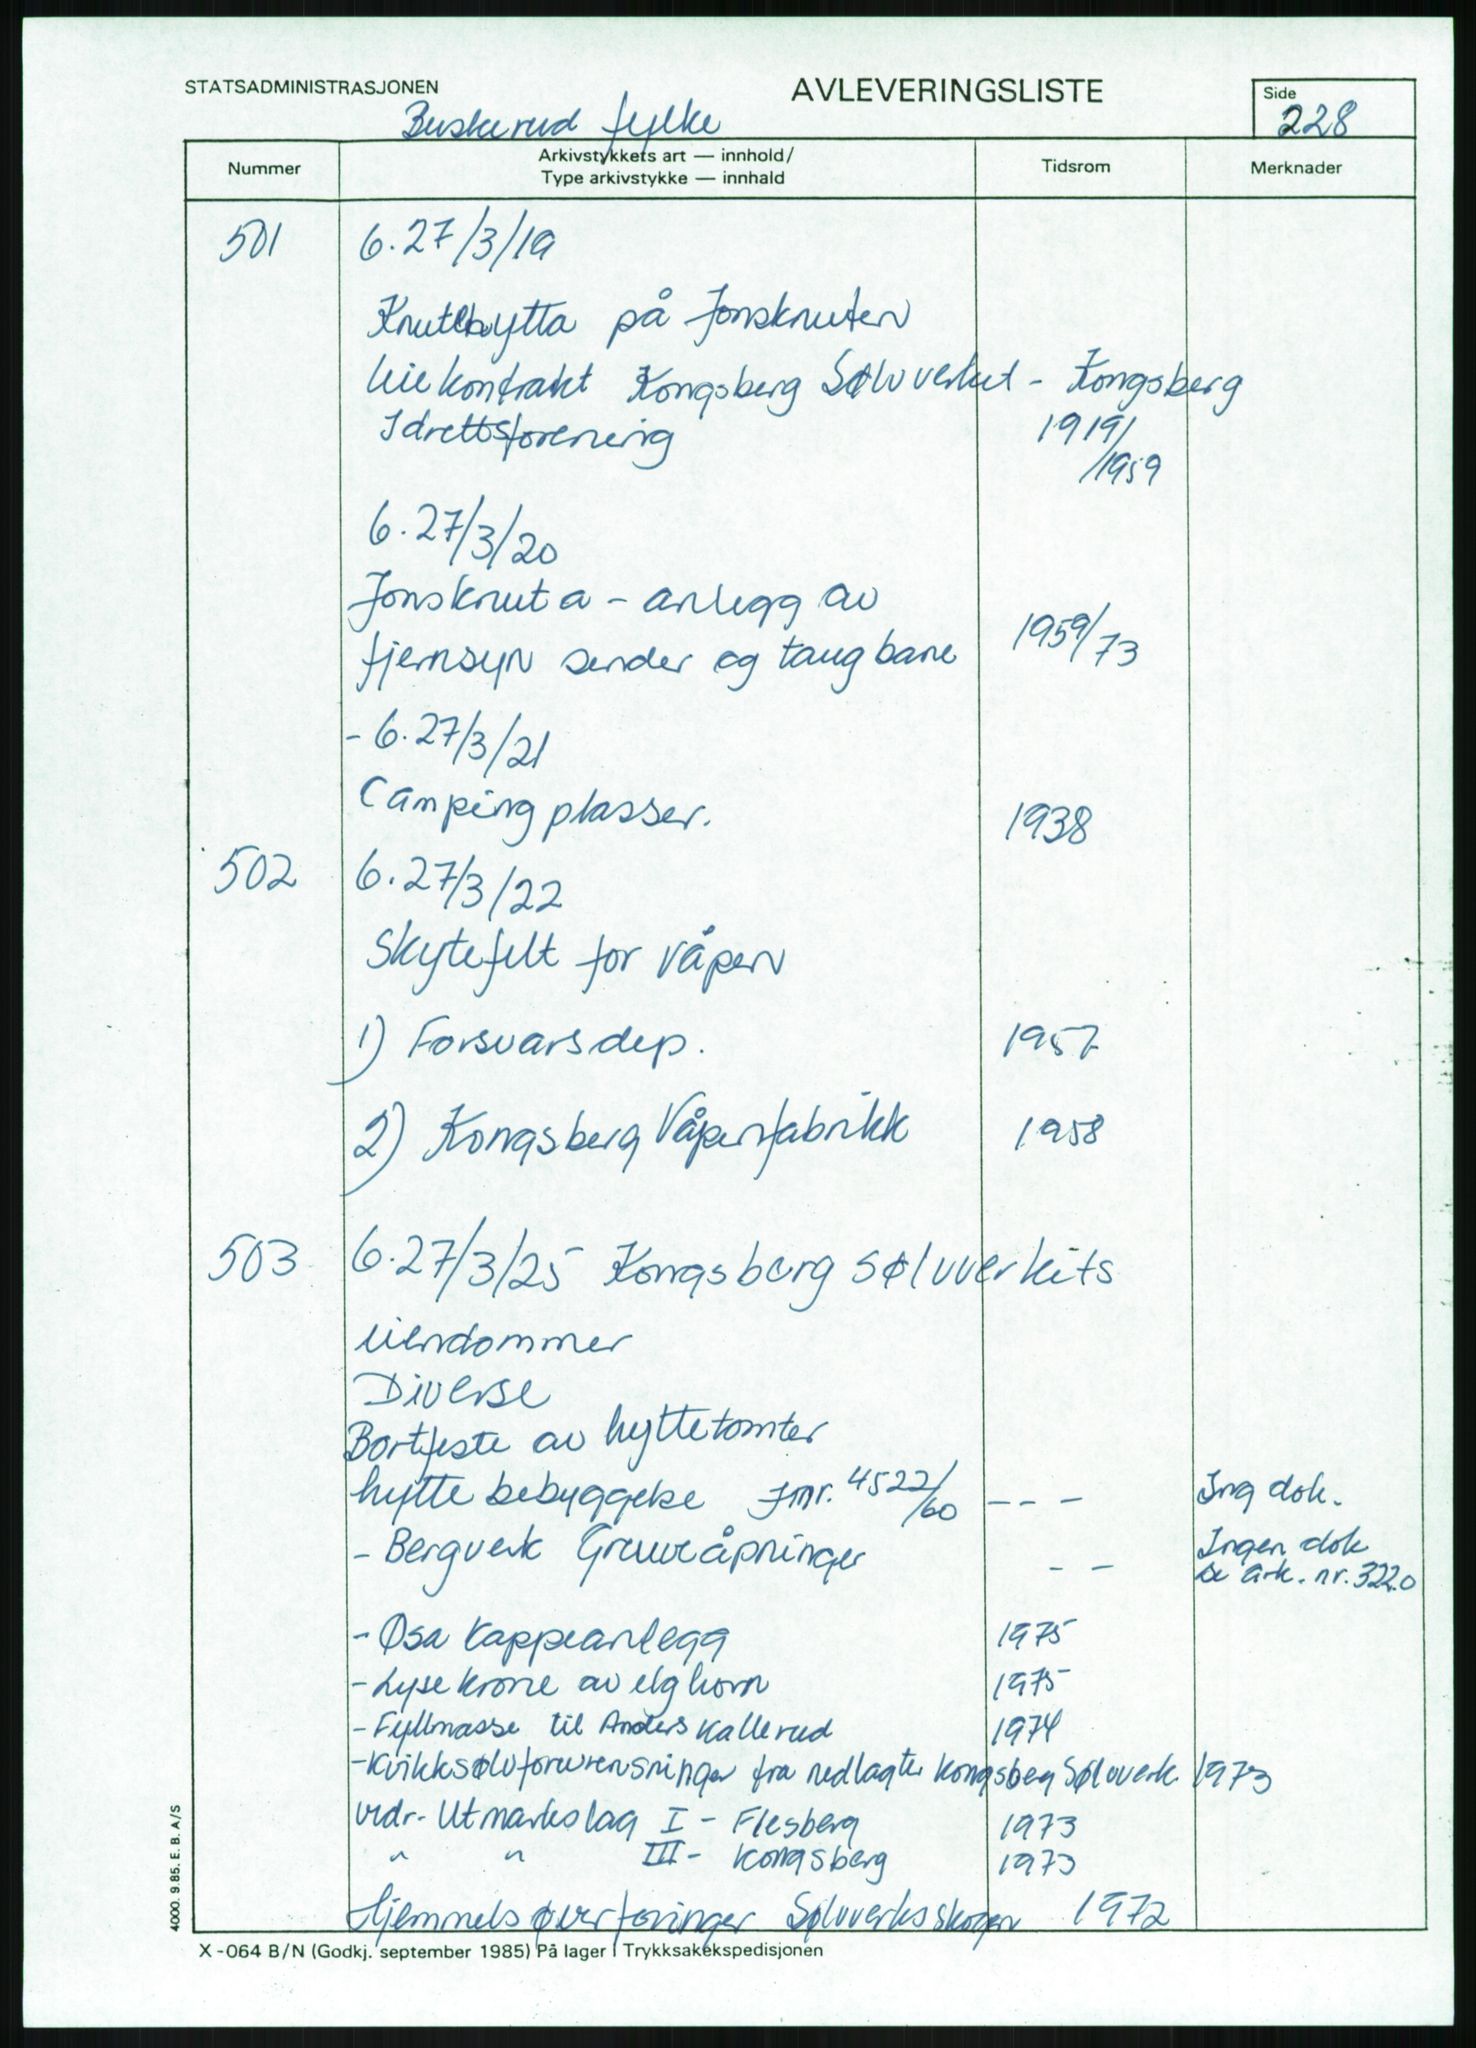 STATSADMINISTRASJONEN
AVLEVERINGSLISTE
Side
228
Buskerud fylke
Nummer
Arkivstykkets art — innhold/
Type arkivstykke — innhald
Tidsrom
Merknader
501 6.27/3/19
Knutehytta på Jonsknuten
leiekontrakt Kongsberg Sølvverket - Kongsberg
Idrettsforening 1919/
/1959
6.27/3/20
Jonsknuta - anlegg av
fjernsyn sender og taugbane 1959/73
- 6.27/3/21
Campingplasser. 1938
502 6.27/3/22
Skytefelt for våpen
1) Forsvarsdep. 1957
2) Kongsberg Våpenfabrikk 1958
503 6.27/3/25 Kongsberg sølvverkets
eiendommer
Diverse
Bortfeste av hyttetomter
hyttebebyggelse Jnr. 4522/60 - - - Ing dok.
- Bergverk Gruveåpninger - - Ingen dok
se ark. nr. 322.0
- Øsa kappeanlegg 1975
- Lysekrone av elghorn 1975
- Fyllmasse til Anders Kallerud 1974
- Kvikksølvforurensninger fra nedlagte Kongsberg Sølvverk 1973
vedr. Utmarkslag I - Flesberg 1973
" " III - Kongsberg 1973
Hjemmelsoverføringer Sølvverksskogen 1972
4000. 9.85. E. B. A/S
X-064 B/N (Godkj. september 1985) På lager i Trykksakekspedisjonen